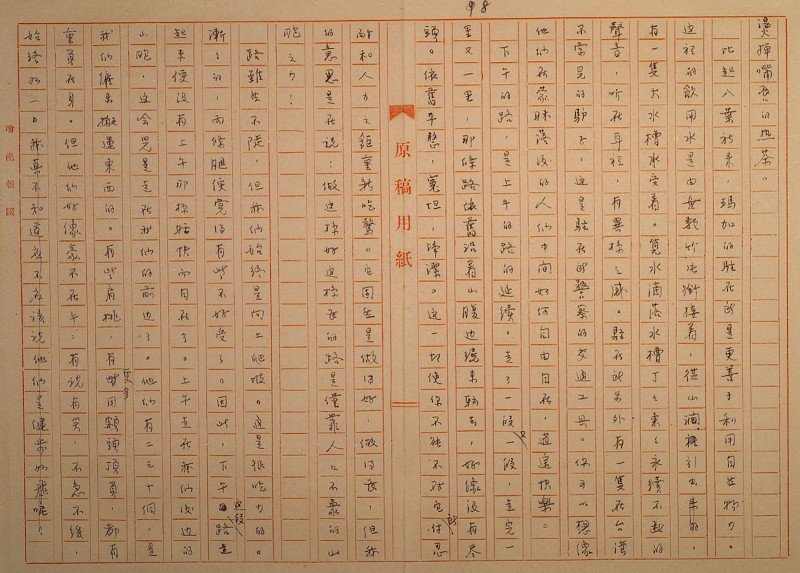 98
燙掉嘴唇的熱茶。
比起八葉社來，瑪加的駐在所是更善于利用自然物力。
這裡的飲用水是由無數竹管銜接着，從山澗裡引出來的。
有一隻大水槽水受着。筧水滴落水槽丁丁東東永續不斷的
聲音，听在耳裡，有異樣之感。駐在所另外有一隻在台灣
不常見的驢子，這是駐在所警察的交通工具。你可以想像
他們在蒙昧落後的人們中間如何自由自在，逍遙快樂。
下午的路，是上午的路的延續。走了一段又一段，走完一
里又一里，那條路依舊沿着山腹邊繞來轉去，好像沒有尽
頭。依舊平整，寬坦，淨潔。這一切使你不能不对它所
原稿用紙
和人力之鉅重新吃驚。它固然是做得好，做得長，但我
的意思是在說：做這樣好這樣長的路是僅靠人口不眾的山
胞之力！
路雖然不陡，但我們始終是向上爬坡。這是很吃力的。
漸漸的，兩條腿便覺得有些不好受了。因此，下午這段路走
起來便沒有上午那樣輕快而自在了。上午走在我們後邊的
山胞，這會兒是走在我們的前邊了。他們有二三十個，是
我們僱來搬運東西的。有些肩挑，有更多用額頭頂負，都有
重負在身。但他們好像毫不在乎，有說有笑，不急不緩，
始終如一。我真不知道應不應該說他們是健步如飛呢？
增產報國